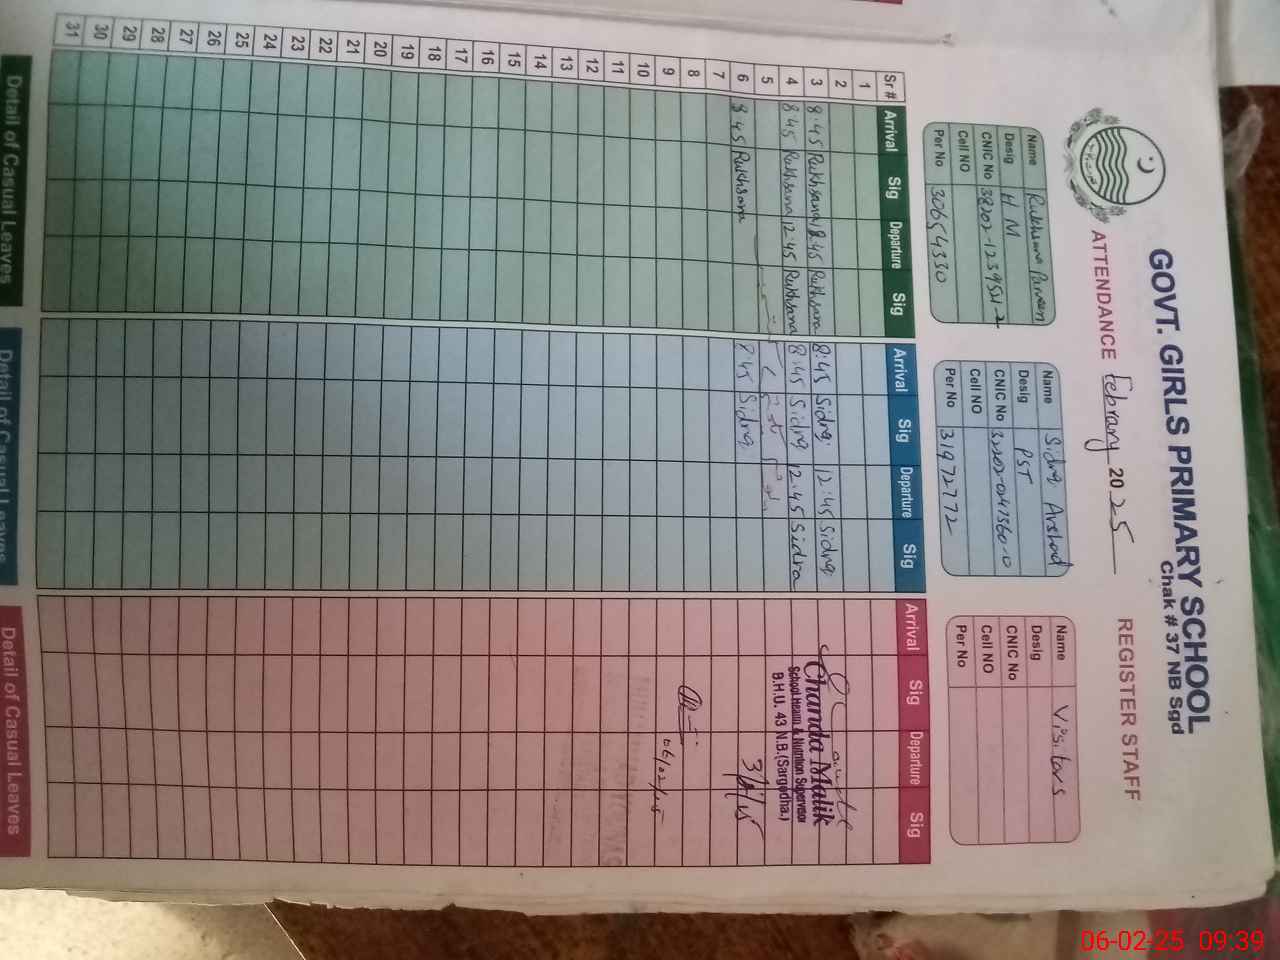 GOVT. GIRLS PRIMARY SCHOOL
Chak # 37 NB Sgd
ATTENDANCE Febrary 2025 REGISTER STAFF
Name Rukhsana Parveen
Desig H M
CNIC No 38202-1239541-2
Cell NO
Per No 30654330
Name Sidra Arshad
Desig PST
CNIC No
Cell NO
Per No 31972772
Name Visitors
Desig
CNIC No
Cell NO
Per No
Sr # Arrival Sig Departure Sig Arrival Sig Departure Sig Arrival Sig Departure Sig
1
2
3 8:45 Rukhsana 12:45 Rukhsana 8:45 Sidra 12:45 Sidra
4 8:45 Rukhsana 12:45 Rukhsana 8:45 Sidra 12:45 Sidra
5
6 8:45 Rukhsana 8:45 Sidra
7
8
9
10
11
12
13
14
15
16
17
18
19
20
21
22
23
24
25
26
27
28
29
30
31
Chanda Malik
School Health & Nutrition Supervisor
B.H.U. 43 N.B.(Sargodha.)
06/02/25
Detail of Casual Leaves Detail of Casual Leaves Detail of Casual Leaves
06-02-25 09:39